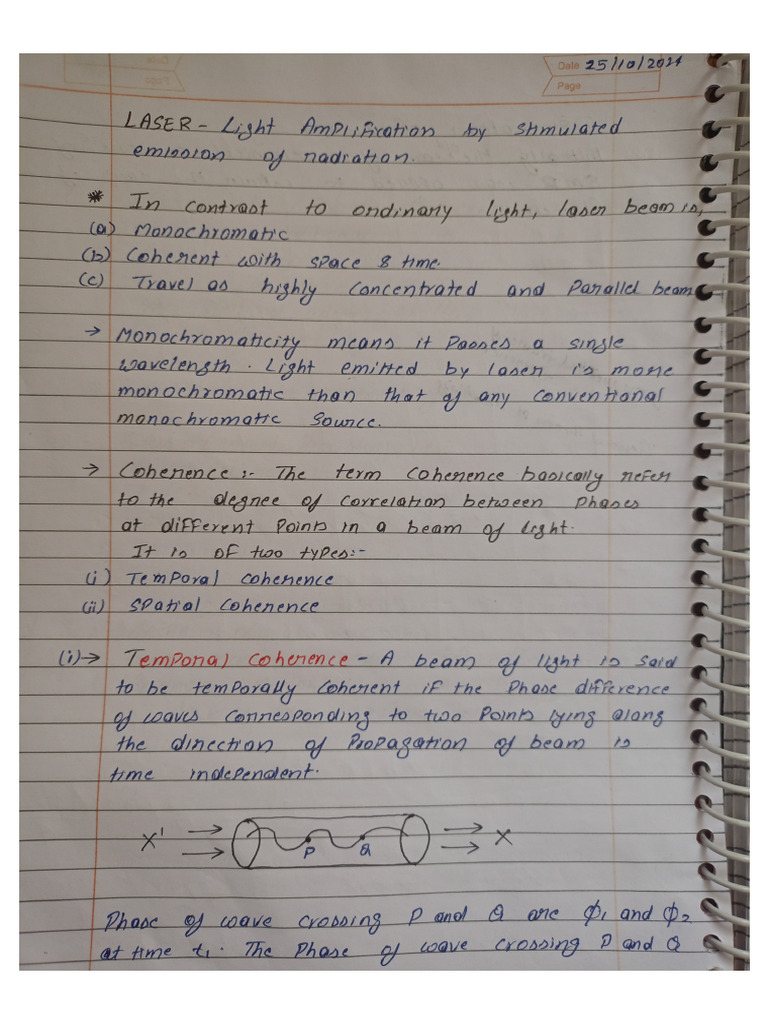 Date 25/10/2024
Page
LASER - Light Amplification by stimulated
emission of radiation.
* In contrast to ordinary light, laser beam is,
(a) Monochromatic
(b) Coherent with space & time.
(c) Travel as highly concentrated and parallel beam
→ Monochromaticity means it passes a single
wavelength. Light emitted by laser is more
monochromatic than that of any conventional
monochromatic source.
→ Coherence:- The term coherence basically refer
to the degree of correlation between phases
at different points in a beam of light.
It is of two types:-
(i) Temporal coherence
(ii) Spatial coherence
(i)→ Temporal coherence - A beam of light is said
to be temporally coherent if the phase difference
of waves corresponding to two points lying along
the direction of propagation of beam is
time independent.
X' P Q X
Phase of wave crossing P and Q are ϕ₁ and ϕ₂
at time t₁. The phase of wave crossing P and Q